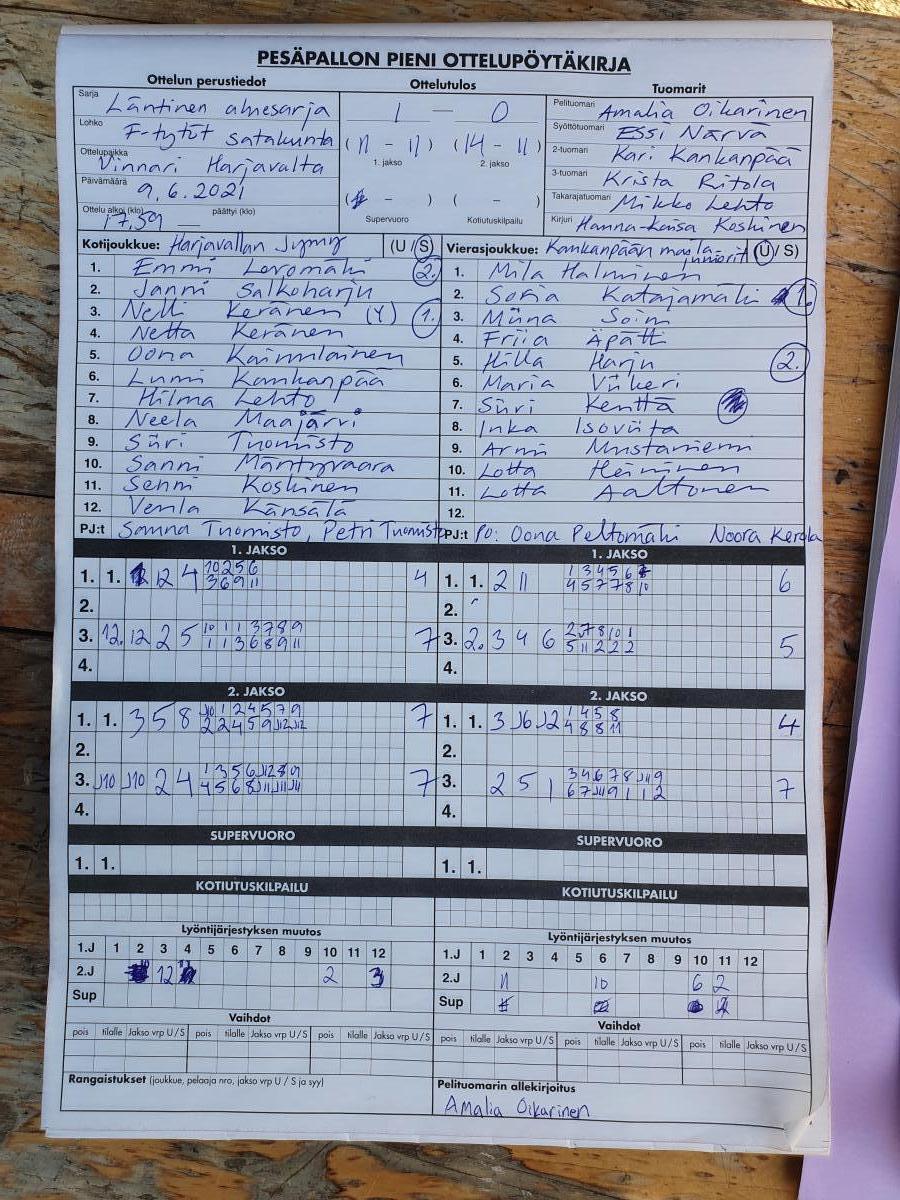 PESÄPALLON PIENI OTTELUPÖYTÄKIRJA
Ottelun perustiedot
Sarja Läntinen aluesarja
Lohko F-tytöt satakunta
Ottelupaikka Vinnari Harjavalta
Päivämäärä 9.6.2021
Ottelu alkoi (klo) 17.59 päättyi (klo)
Ottelutulos
1 — 0
(11 - 11) (14 - 11)
1. jakso 2. jakso
( - ) ( - )
Supervuoro Kotiutuskilpailu
Tuomarit
Pelituomari Amalia Oikarinen
Syöttötuomari Essi Närvä
2-tuomari Kari Kankanpää
3-tuomari Krista Ritola
Takarajatuomari Mikko Lehto
Kirjuri Hanna-Kaisa Koskinen
Kotijoukkue: Harjavallan Jymy (U / S)
1. Emmi Levomäki 2.
2. Janni Salkoharju
3. Nelli Keränen (Y) 1.
4. Netta Keränen
5. Oona Kainulainen
6. Lumi Kankanpää
7. Hilma Lehto
8. Neela Maajärvi
9. Siiri Tuomisto
10. Sanni Mäntyvaara
11. Senni Koskinen
12. Venla Känsälä
PJ:t Sanna Tuomisto, Petri Tuomisto
Vierasjoukkue: Kankaanpään maila-juniorit (U / S)
1. Mila Halminen
2. Sofia Katajamäki 1.
3. Miina Soini
4. Friia Äpätti
5. Hilla Harju 2.
6. Maria Viikeri
7. Siiri Kenttä
8. Inka Isoviita
9. Armi Mustaniemi
10. Lotta Heininen
11. Lotta Aaltonen
12.
PJ:t PO: Oona Peltomäki Noora Kerola
1. JAKSO
1. 1. 12 4 10 2 5 6 4
3 6 9 11
2.
3. 12. 12 2 5 10 1 1 3 7 8 9 7
1 1 3 6 8 9 11
4.
1. JAKSO
1. 1. 2 11 1 3 4 5 6 6
4 5 7 7 8 10
2.
3. 2. 3 4 6 2 7 8 10 1 5
5 11 2 2 2
4.
2. JAKSO
1. 1. 3 5 8 J10 1 2 4 5 7 9 7
2 2 4 5 9 J12 J12
2.
3. J10 J10 2 4 1 3 5 6 J12 8 9 7
4 5 6 8 J11 J11 J11
4.
2. JAKSO
1. 1. 3 J6 J2 1 4 5 8 4
4 8 8 11
2.
3. 2 5 1 3 4 6 7 8 J11 9 7
6 7 J11 9 1 1 2
4.
SUPERVUORO
1. 1.
SUPERVUORO
1. 1.
KOTIUTUSKILPAILU
KOTIUTUSKILPAILU
Lyöntijärjestyksen muutos
1.J 1 2 3 4 5 6 7 8 9 10 11 12
2.J 12 2 3
Sup
Lyöntijärjestyksen muutos
1.J 1 2 3 4 5 6 7 8 9 10 11 12
2.J 11 10 6 2
Sup
Vaihdot
pois tilalle Jakso vrp U / S pois tilalle Jakso vrp U / S pois tilalle Jakso vrp U / S
Vaihdot
pois tilalle Jakso vrp U / S pois tilalle Jakso vrp U / S pois tilalle Jakso vrp U / S
Rangaistukset (joukkue, pelaaja nro, jakso vrp U / S ja syy)
Pelituomarin allekirjoitus
Amalia Oikarinen